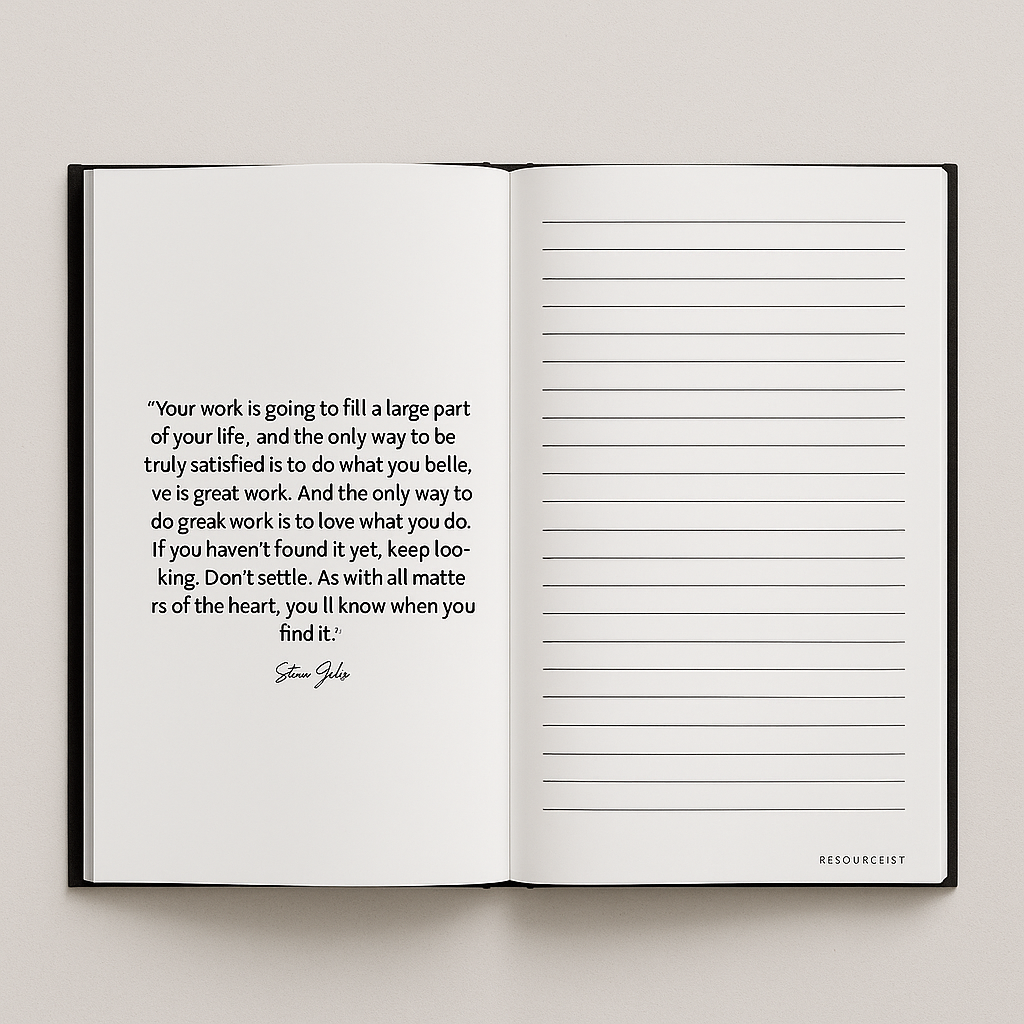 “Your work is going to fill a large part
of your life, and the only way to be
truly satisfied is to do what you belle,
ve is great work. And the only way to
do greak work is to love what you do.
If you haven’t found it yet, keep loo-
king. Don’t settle. As with all matte
rs of the heart, you ll know when you
find it.”
RESOURCEIST